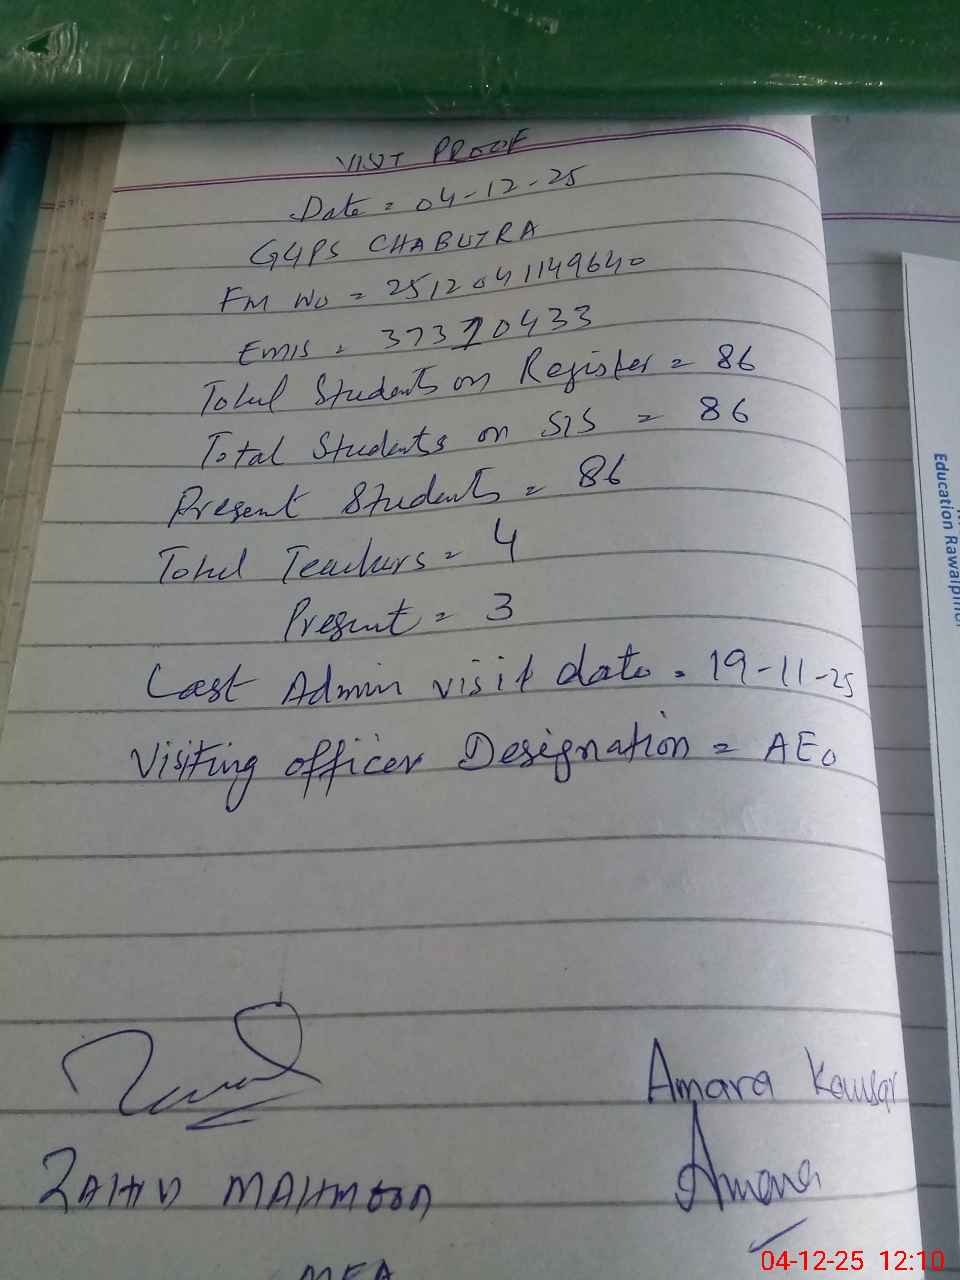 VISIT PROOF
Date = 04-12-25
GGPS CHABUTRA
FM No = 2512041149640
Emis = 37310433
Total Students on Register = 86
Total Students on SIS = 86
Present Students = 86
Total Teachers = 4
Present = 3
Last Admin visit date = 19-11-25
Visiting officer Designation = AEO
Amara Kousar
Amara
ZAHID MAHMOOD
MEA
Education Rawalpindi
04-12-25 12:10